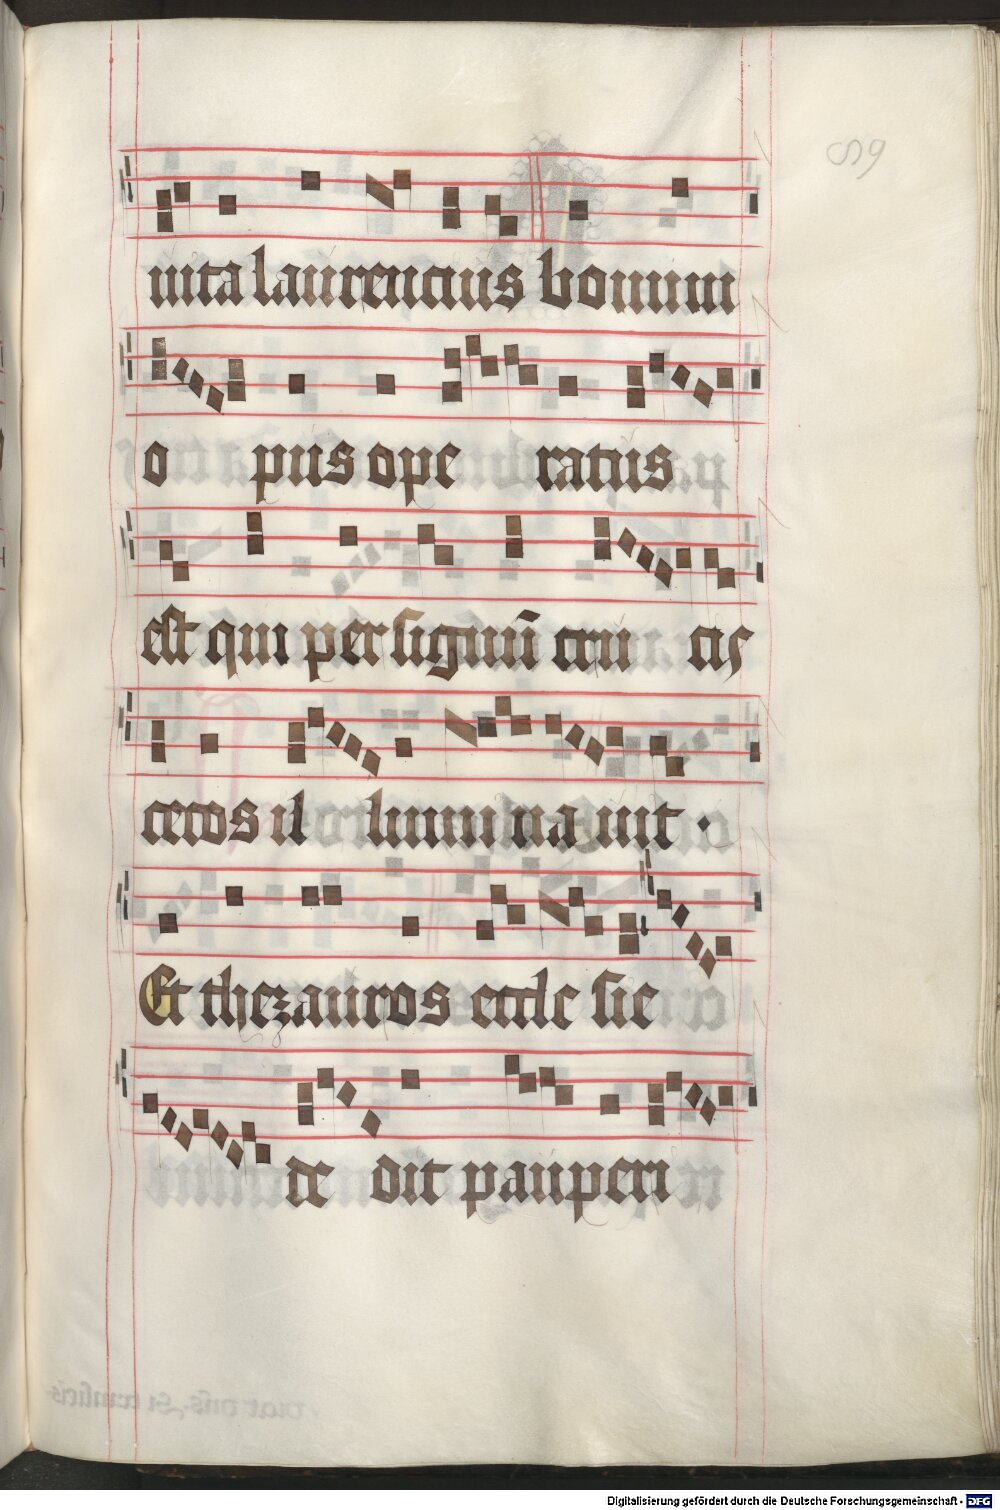 uita laurencius bonum
opus ope ratus
est qui per signū cru cis
cecos il lumi na uit .
Et thezauros eccle sie
de dit pauperi
Digitalisierung gefördert durch die Deutsche Forschungsgemeinschaft - DFG